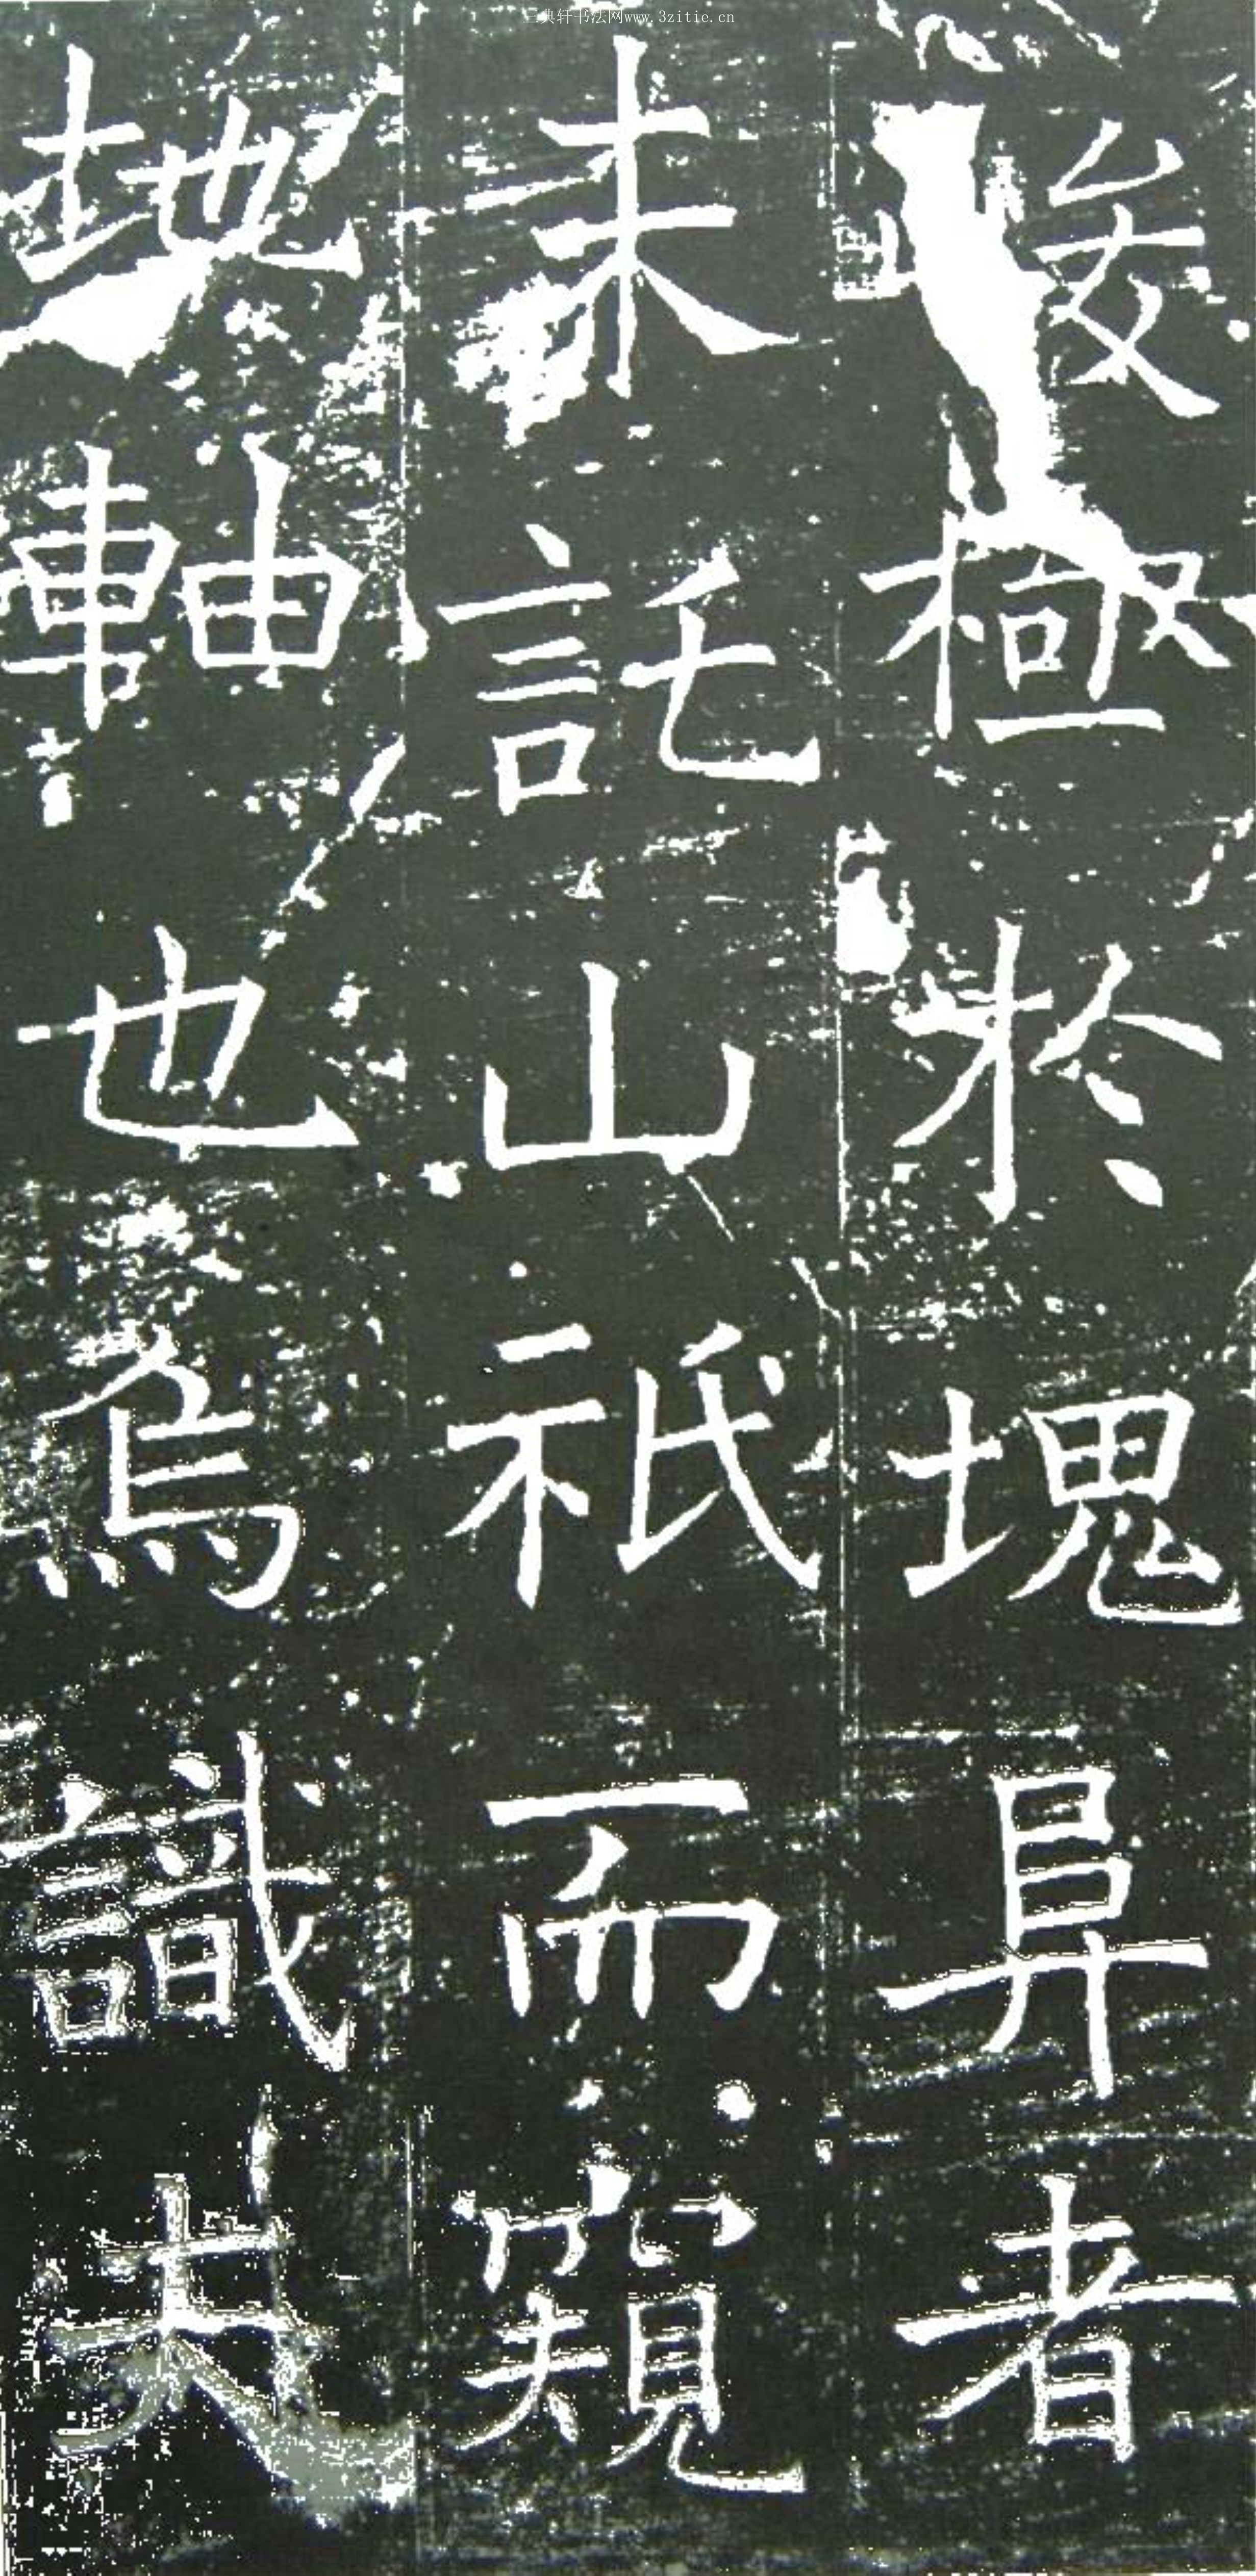 三典轩书法网www.3zitie.cn
峻極於塊阜者
未託山祇而窺
地軸也焉識夫